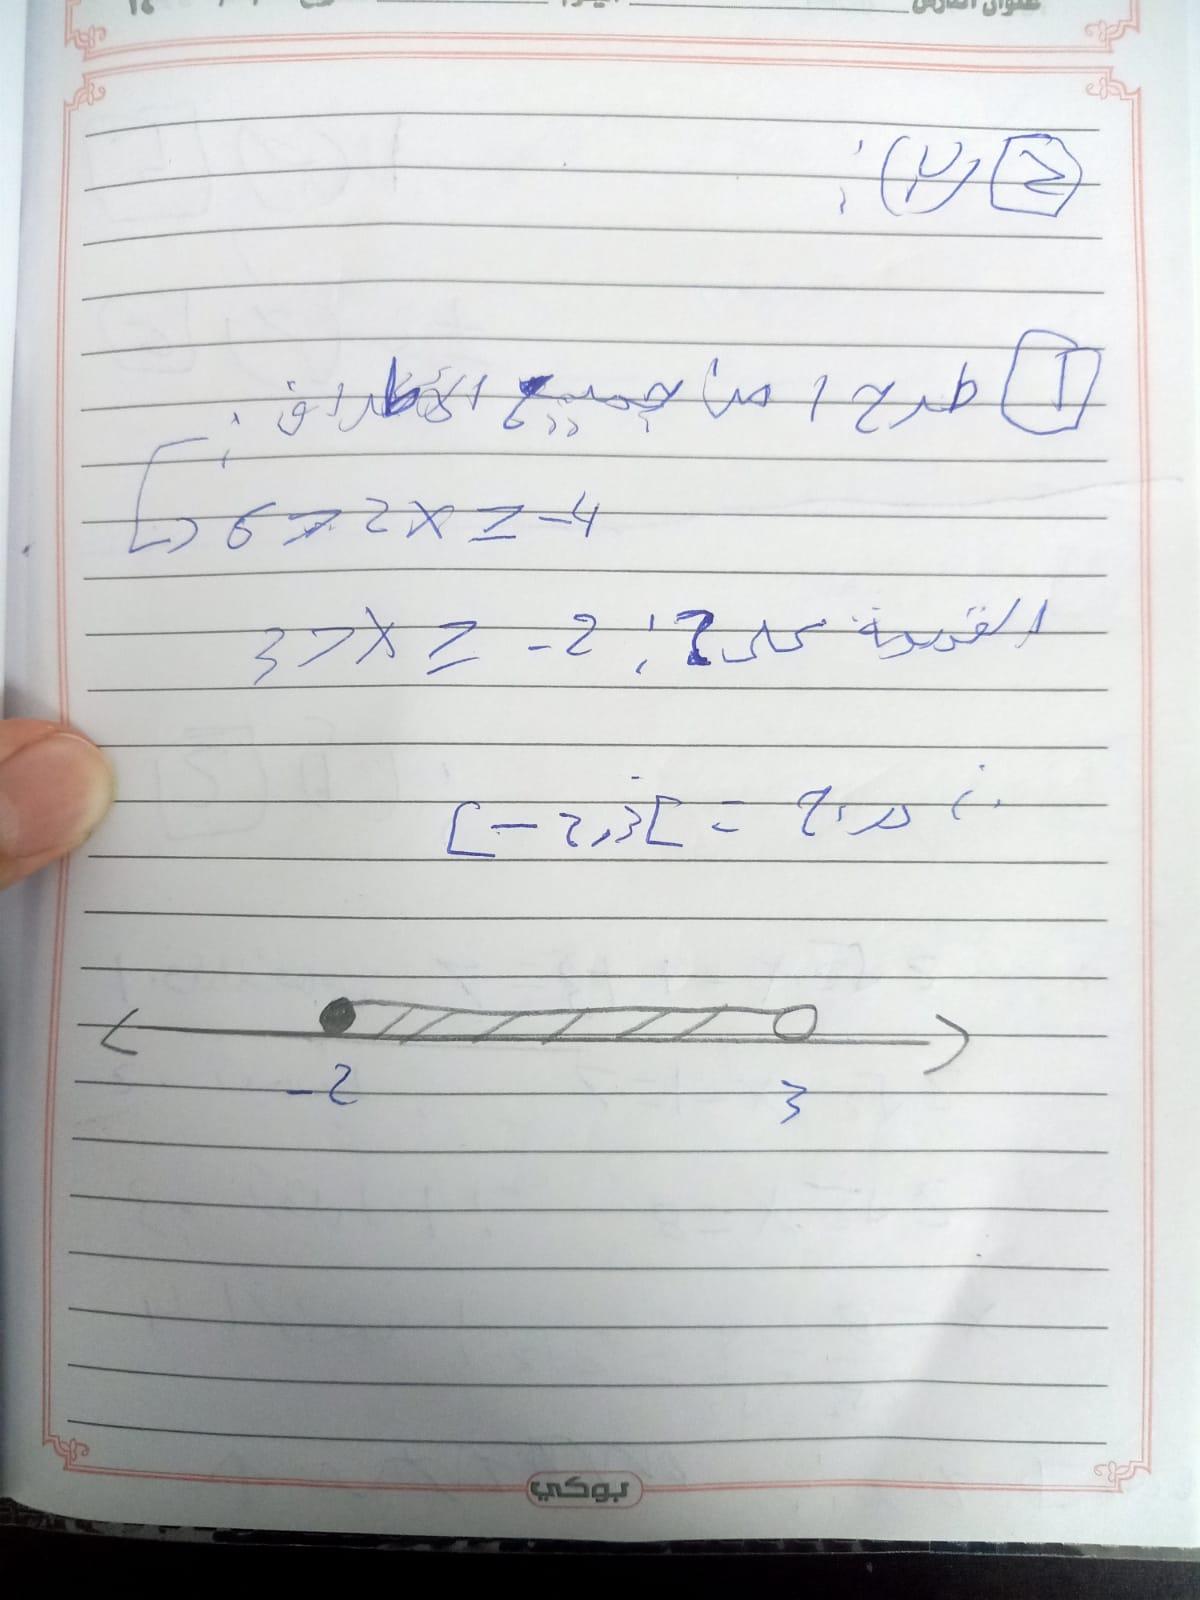 عنوان الدرس
2 (ب):
1 طرح 1 من جميع الأطراف:
6 > 2x ≥ -4
القسمة على 2: 3 > x ≥ -2
∴ م.ح = [-2,3[
-2 3
بوكي